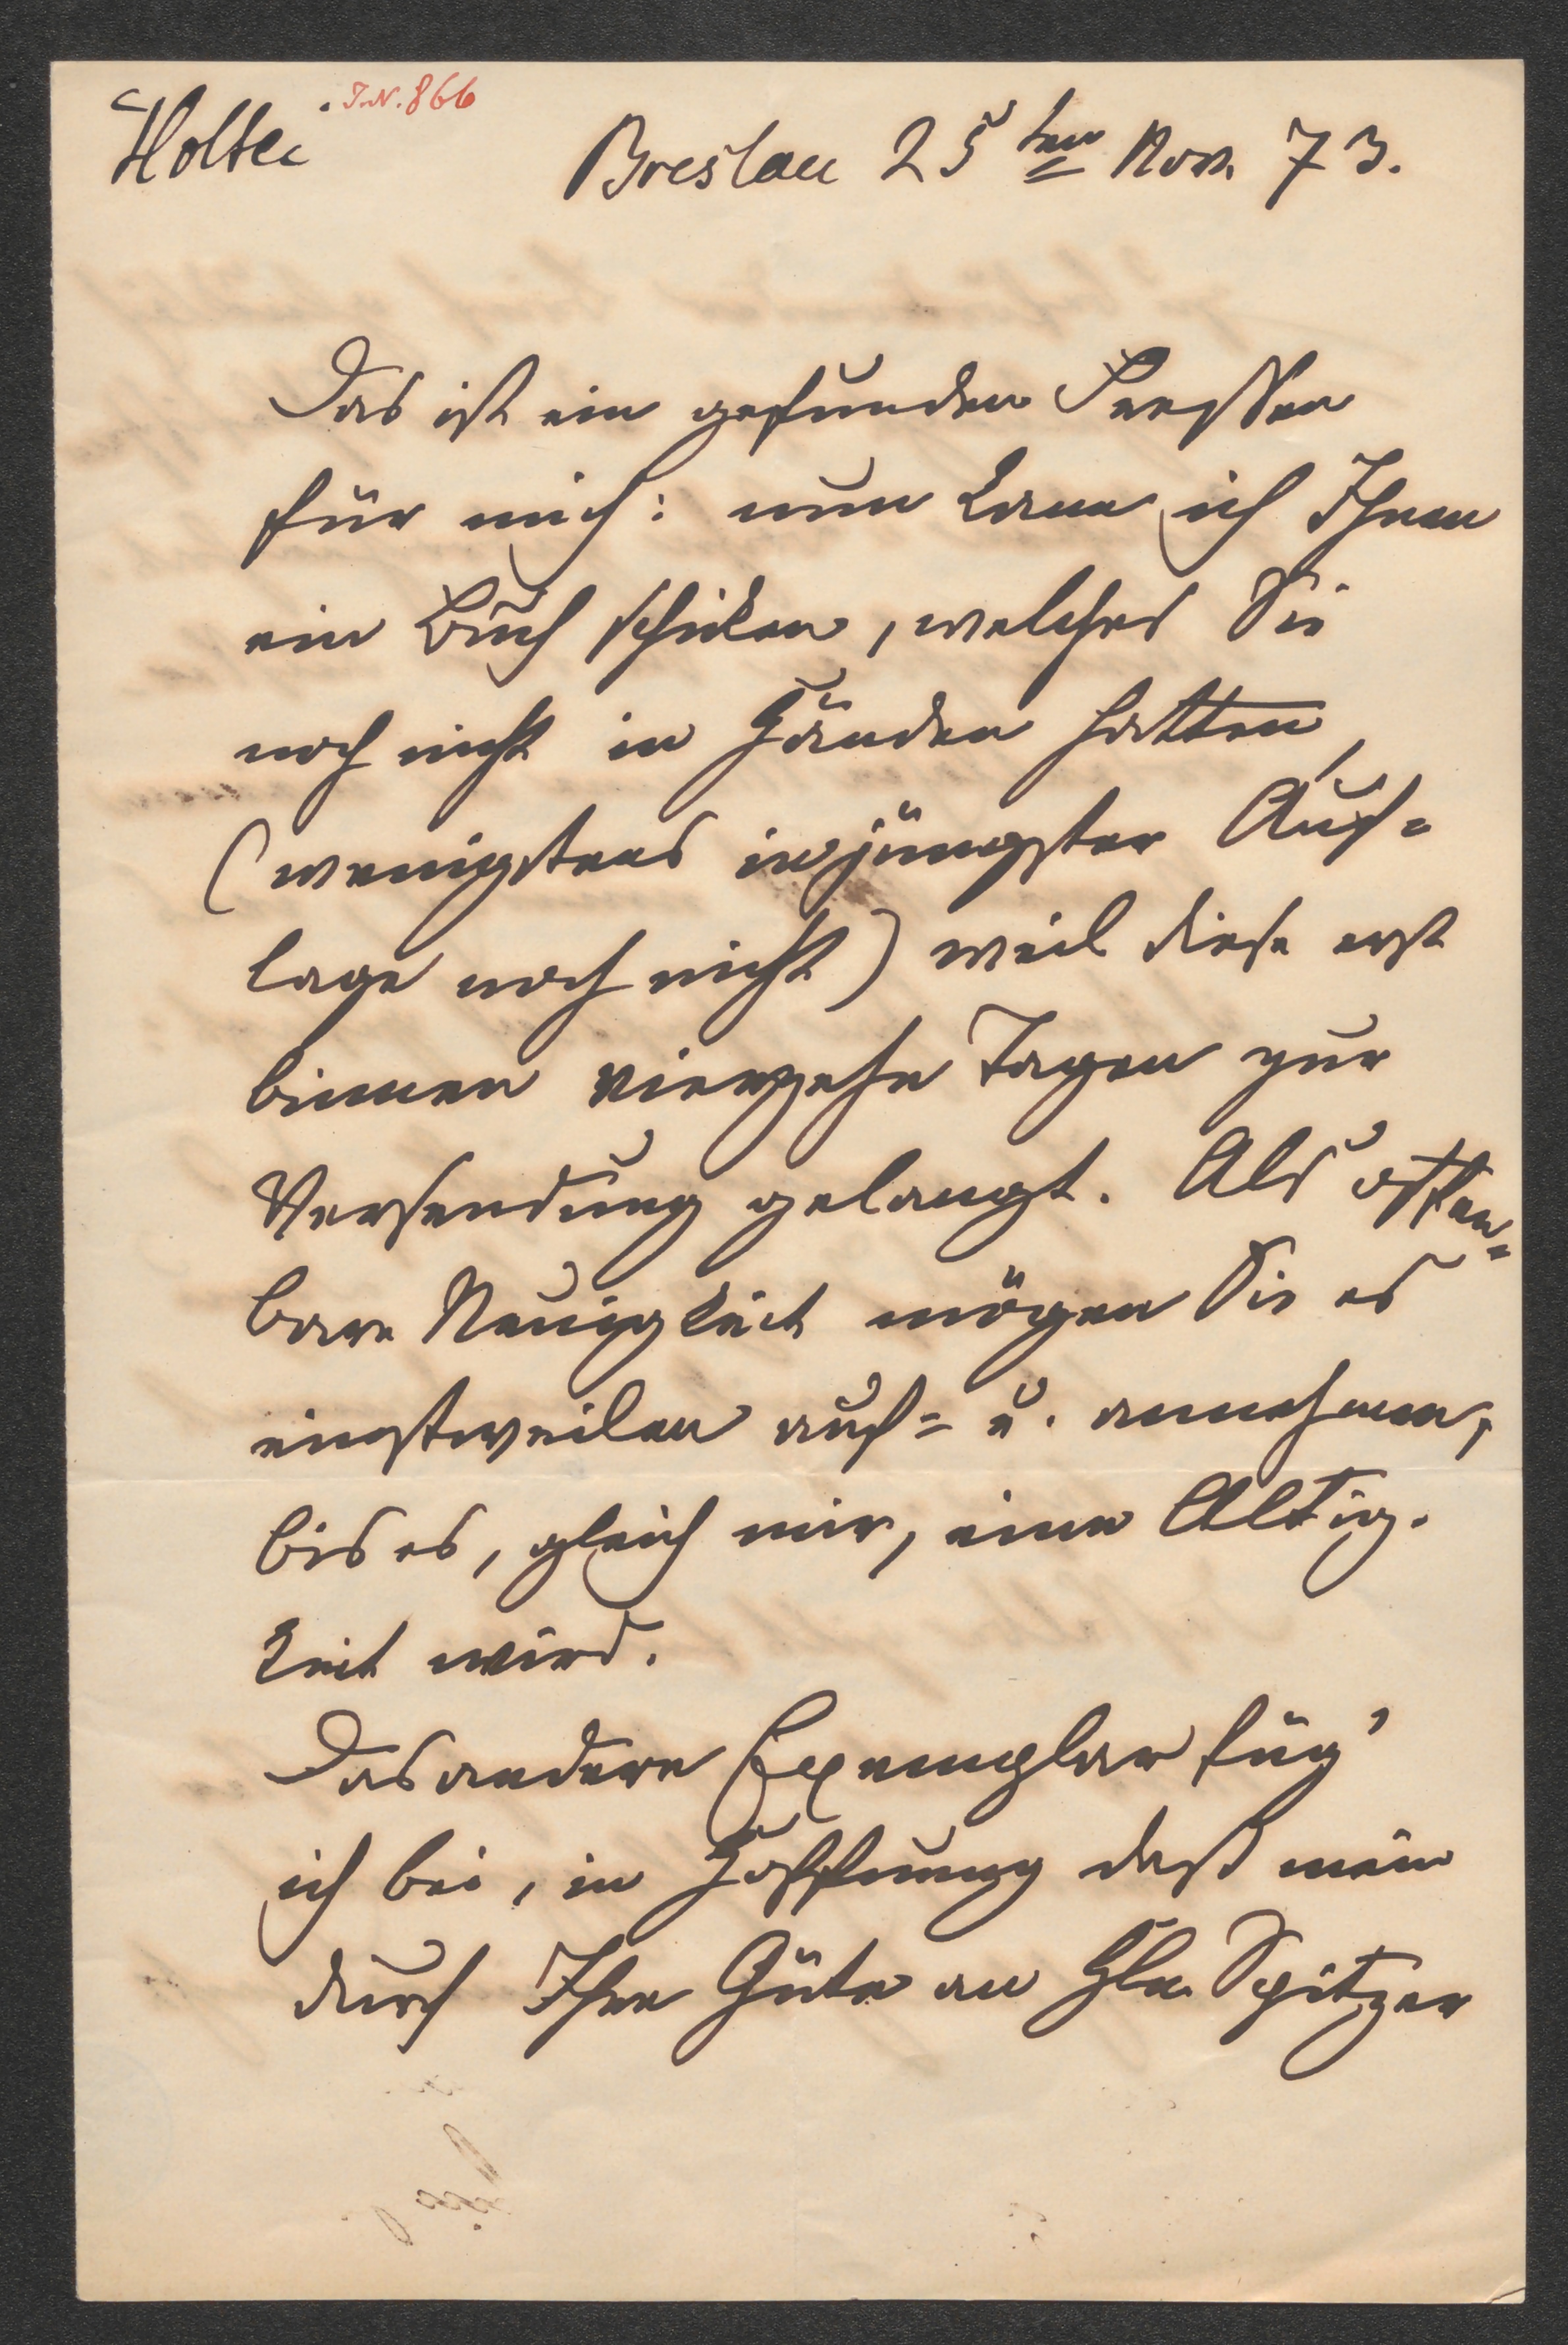 Holtei
I.N. 866
Breslau 25ten Nov. 73.
Das ist ein gefunden Fressen
für mich: nun kann ich Ihnen
ein Buch schicken, welches Sie
noch nicht in Händen hatten,
(wenigstens in jüngster Auf=
lage noch nicht) weil diese erst
binnen vierzehn Tagen zur
Versendung gelangt. Als offen=
bare Neuigkeit mögen Sie es
einstweilen auf= u. annehmen,
bis es, gleich mir, eine Altig.
keit wird.
Das andere Exemplar füg'
ich bei, in Hoffnung daß mein
durch Ihre Güte an Spitzer